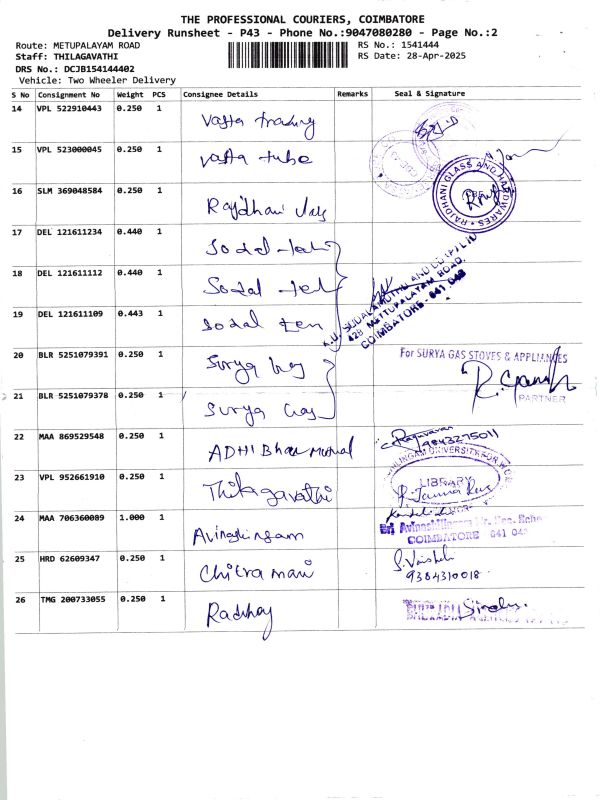 THE PROFESSIONAL COURIERS, COIMBATORE
Delivery Runsheet - P43 - Phone No.:9047080280 - Page No.:2
Route: METUPALAYAM ROAD
RS No.: 1541444
Staff: THILAGAVATHI
RS Date: 28-Apr-2025
DRS No.: DCJB154144402
Vehicle: Two Wheeler Delivery
S No Consignment No Weight PCS Consignee Details Remarks Seal & Signature
14 VPL 522910443 0.250 1 Vasta trading
15 VPL 523000045 0.250 1 Vasta tube
16 SLM 369048584 0.250 1 Rajdhani
RAJDHANI GLASS AND HARDWARES
17 DEL 121611234 0.440 1 Sodal
18 DEL 121611112 0.440 1 Sodal
19 DEL 121611109 0.443 1 Sodal
428 METTUPALAYAM ROAD.
COIMBATORE - 641 043
20 BLR 5251079391 0.250 1 Surya Gas
For SURYA GAS STOVES & APPLIANCES
21 BLR 5251079378 0.250 1 Surya Gas
PARTNER
22 MAA 869529548 0.250 1 ADHI Bhar Mutual
Raguvaran
9843275011
23 VPL 952661910 0.250 1 Thilagavathi
LIBRARY
24 MAA 706360089 1.000 1 Avinashilingam
COIMBATORE 641 043
25 HRD 62609347 0.250 1 Chitra mani
9384310018
26 TMG 200733055 0.250 1